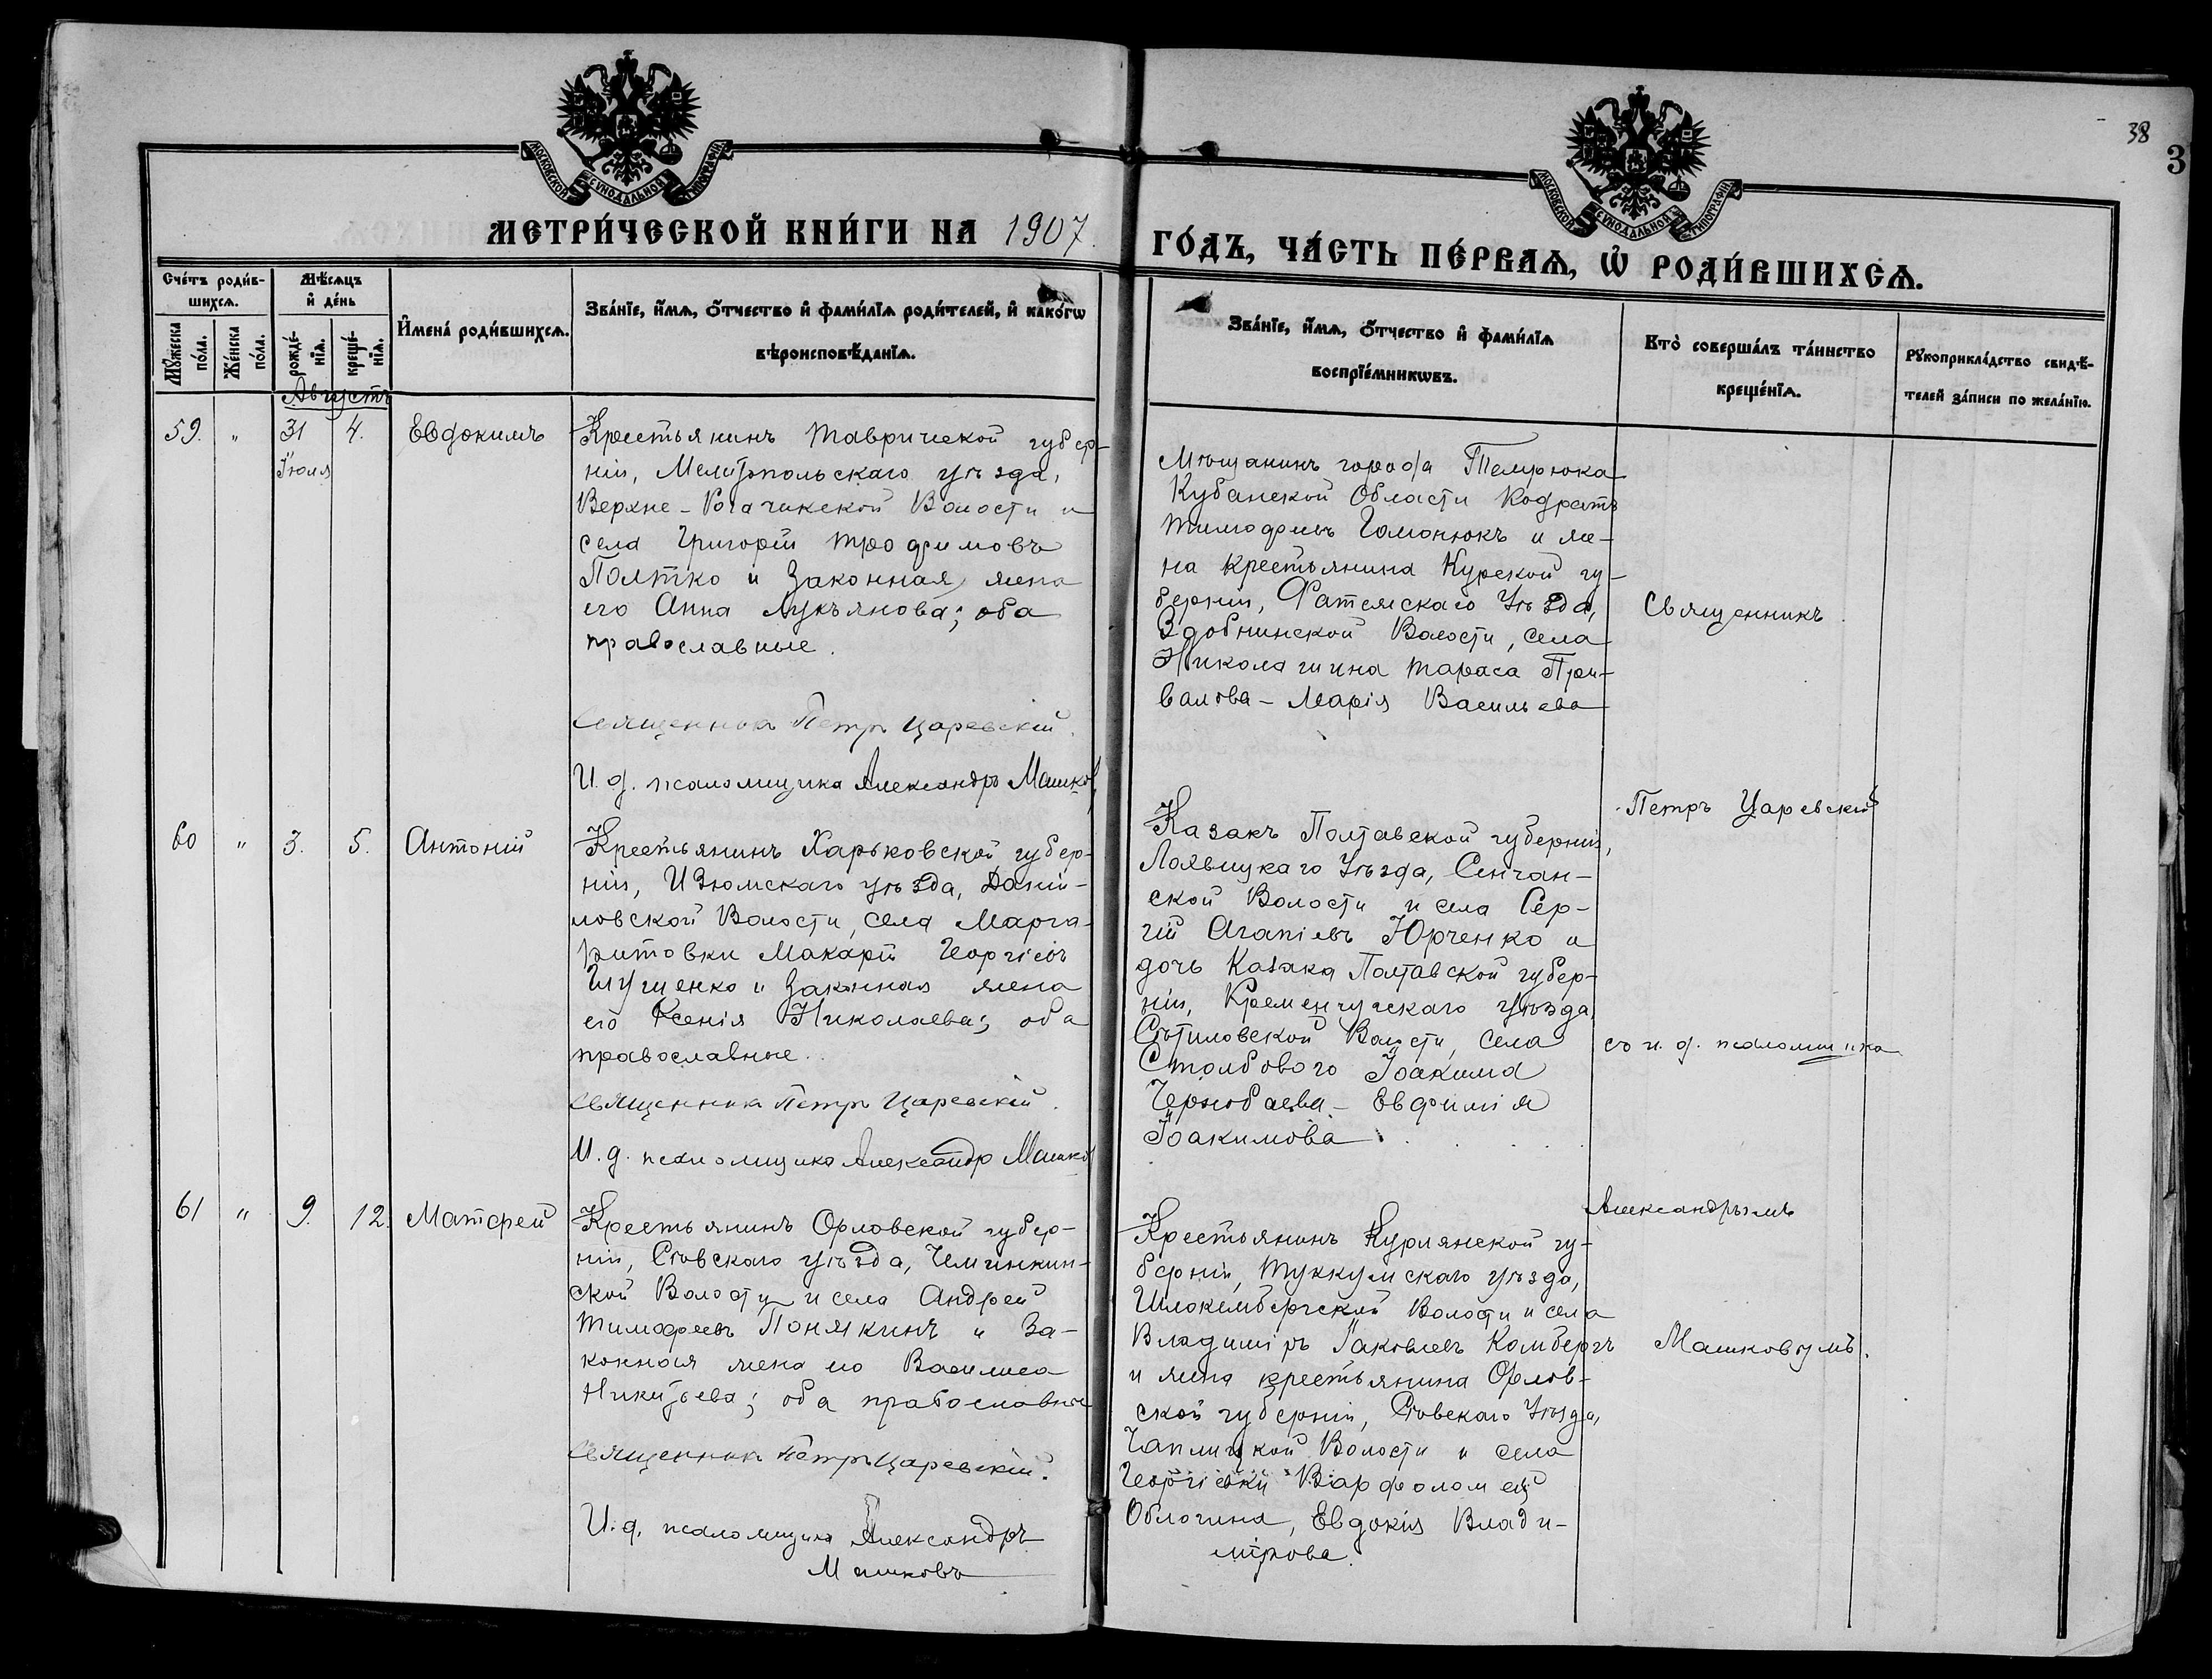 38
3
МОСКОВСКОЙ СѴНОДАЛЬНОЙ ТИПОГРАФІИ
МОСКОВСКОЙ СѴНОДАЛЬНОЙ ТИПОГРАФІИ
МЕТРИ́ЧЕСКОЙ КНИ́ГИ НА 1907.
ГО́ДЪ, ЧА́СТЬ ПЕ́РВАѦ, Ѽ РОДИ́ВШИХСѦ.
Сче́тъ роди́в-
шихсѧ.
Мꙋ́жеска по́ла.
Же́нска по́ла.
Мѣ́сѧцъ
и҆ де́нь
рожде́-
нїѧ.
креще́-
нїѧ.
И҆мена̀ роди́вшихсѧ.
Зва́нїе, и҆́мѧ, ѻ҆́тчество и҆ фами́лїѧ роди́телей, и҆ како́гѡ
вѣроисповѣ́данїѧ.
Зва́нїе, и҆́мѧ, ѻ҆́тчество и҆ фами́лїѧ
воспрїе́мникѡвъ.
Кто̀ соверша́лъ та́инство
креще́нїѧ.
Рꙋкоприкла́дство свидѣ́-
телей за́писи по жела́нїю.
Августъ
59. " 31 4. Евдокимъ
Іюля
Крестьянинъ Таврической губер-
ніи, Мелитопольскаго уѣзда,
Верхне-Рогачикской Волости и
села Григорій Трофимовъ
Полтко и законная жена
его Анна Лукъянова; оба
православные.
Священникъ Петръ Царевскій.
И. д. псаломщика Александръ Машковъ
Мѣщанинъ города Темрюка
Кубанской Области Кодратъ
Тимофеевъ Гомонюкъ и же-
на крестьянина Курской гу-
берніи, Фатежскаго Уѣзда,
Волости, села
Тараса При-
валова - Марія Васильева
Священникъ
Петръ Царевскій
60 " 3. 5. Антоній
Крестьянинъ Харьковской губер-
ніи, Изюмскаго уѣзда, Даніи-
ловской Волости, села Марга-
ритовки Макарій Георгіевъ
и законная жена
его Ксенія Николаева; оба
православные.
Священникъ Петръ Царевскій.
И. д. псаломщика Александръ Машковъ
Казакъ Полтавской губерніи,
Лохвицкаго Уѣзда, Сенчан-
ской Волости и села Сер-
гій Агапіевъ Юрченко и
дочь Казака Полтавской губер-
ніи, Кременчугскаго уѣзда
Волости, села
Столбового Іоакима
Чернобаева - Евфимія
Іоакимова
съ и. д. псаломщика
Александромъ
61 " 9. 12. Матфей
Крестьянинъ Орловской губер-
ніи, Сѣвскаго уѣзда,
ской Волости и села Андрей
Тимофеевъ Понякинъ и за-
конная жена его Василиса
Никитьева; оба православные
Священникъ Петръ Царевскій.
И. д. псаломщика Александръ
Машковъ
Крестьянинъ Курлянской гу-
берніи, Туккумскаго уѣзда,
Волости и села
Владиміръ Іаковлевъ Комбергъ
и жена крестьянина Орлов-
ской губерніи, Сѣвскаго Уѣзда,
Волости и села
Варфоломей
Облогина, Евдокія Влади-
мірова.
Машковымъ.